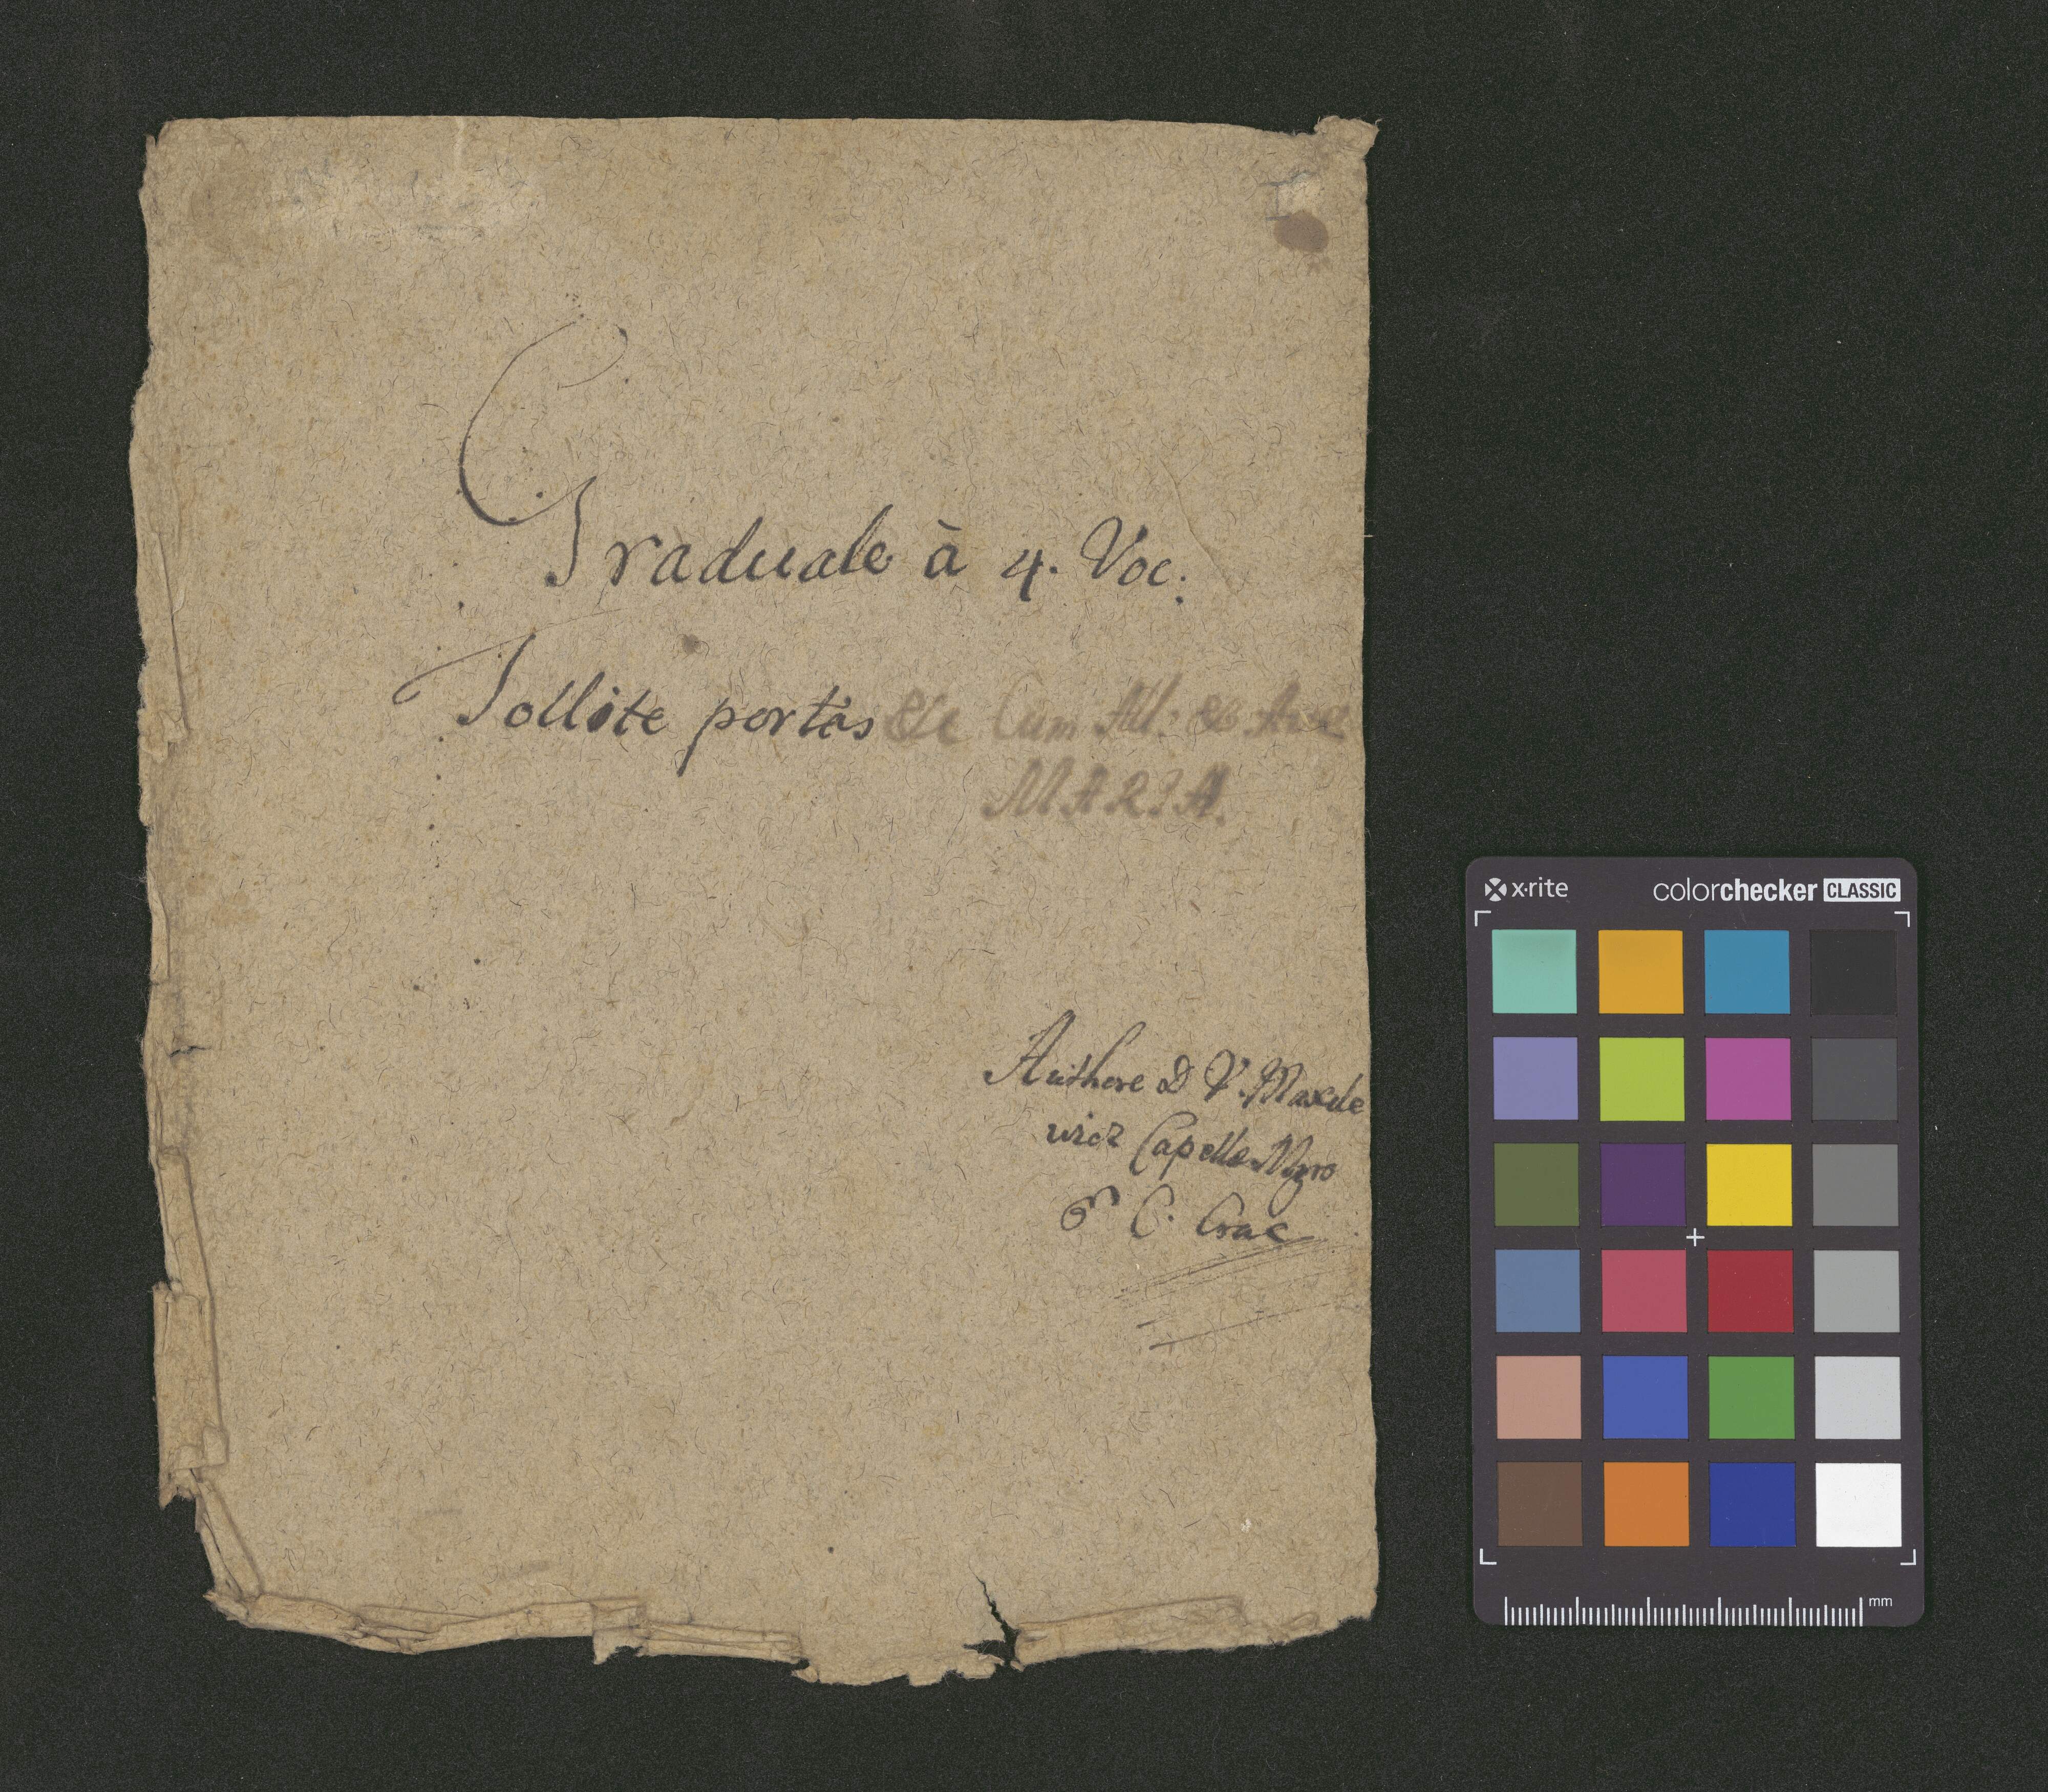 Graduale à 4. Voc:
Tollite portas &c Cum All: & Ave
MARIA.
Authore D V. Maxyle
wicz Capellæ Mgro
E C. Crac
x·rite colorchecker CLASSIC
mm